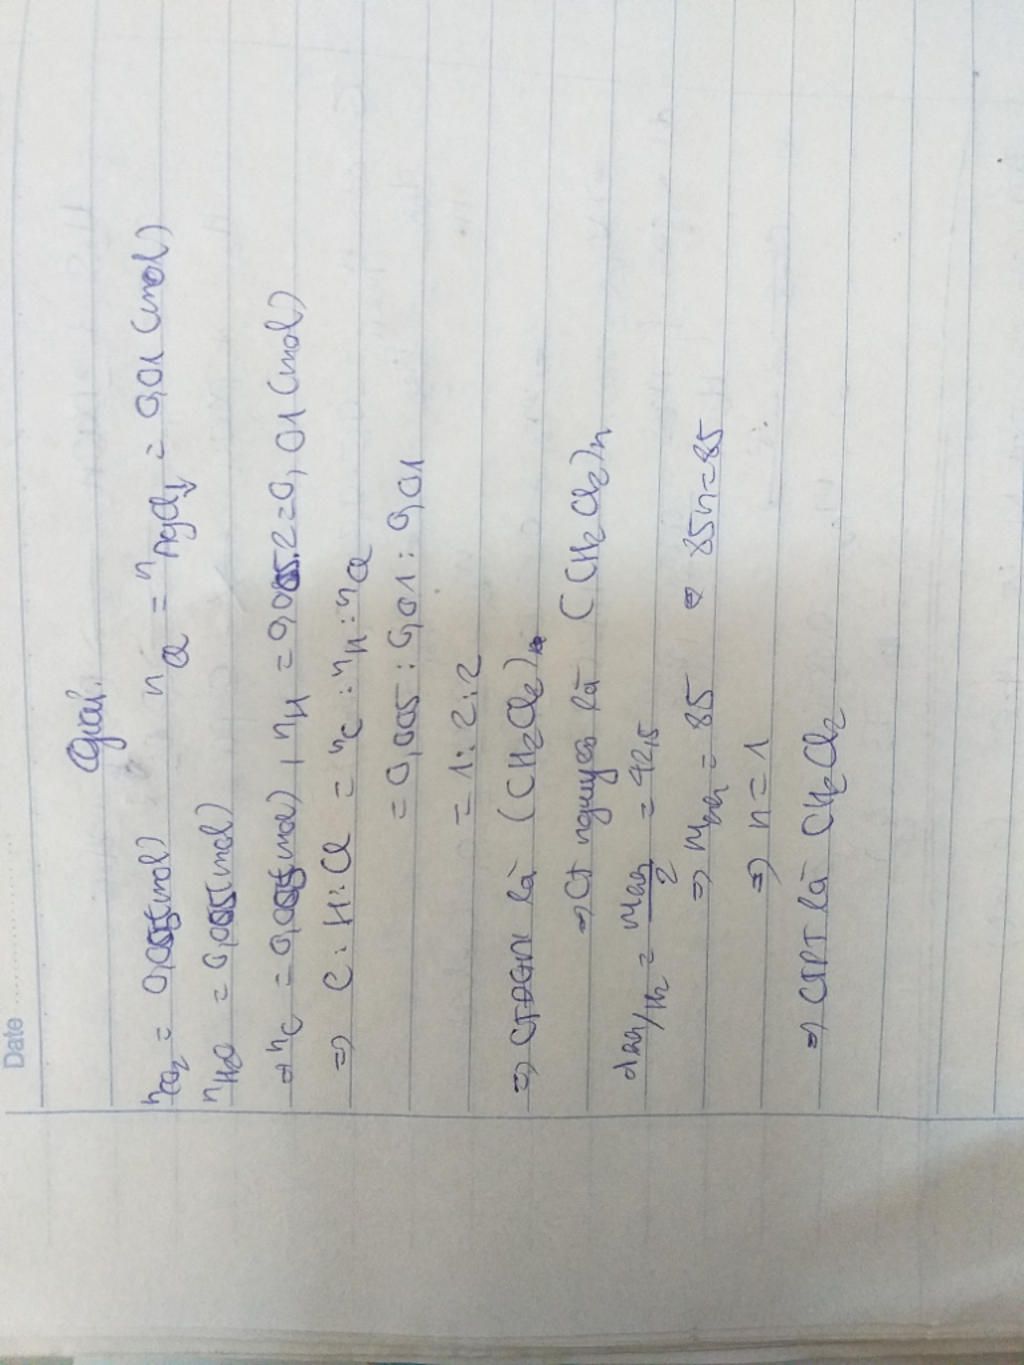 Date
Giải.
nCO2 = 0,005(mol) nCl = nAgCl↓ = 0,01 (mol)
nH2O = 0,005(mol)
⇒ nC = 0,005(mol), nH = 0,005.2=0,01 (mol)
⇒ C : H : Cl = nC : nH : nCl
= 0,005 : 0,01 : 0,01
= 1 : 2 : 2
⇒ CTĐGN là (CH2Cl2)n
⇒ Ct nguyên là (CH2Cl2)n
/H2 = /2 = 42,5
⇒ = 85 ⇔ 85n=85
⇒ n = 1
⇒ CTPT là CH2Cl2